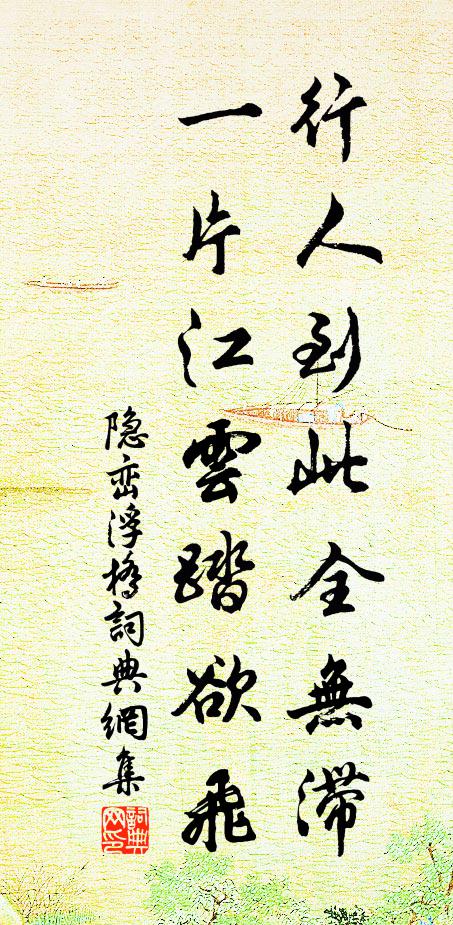 行人到此全無滯
一片江雲踏欲飛
隐峦浮橋詞典網集
詞典网印